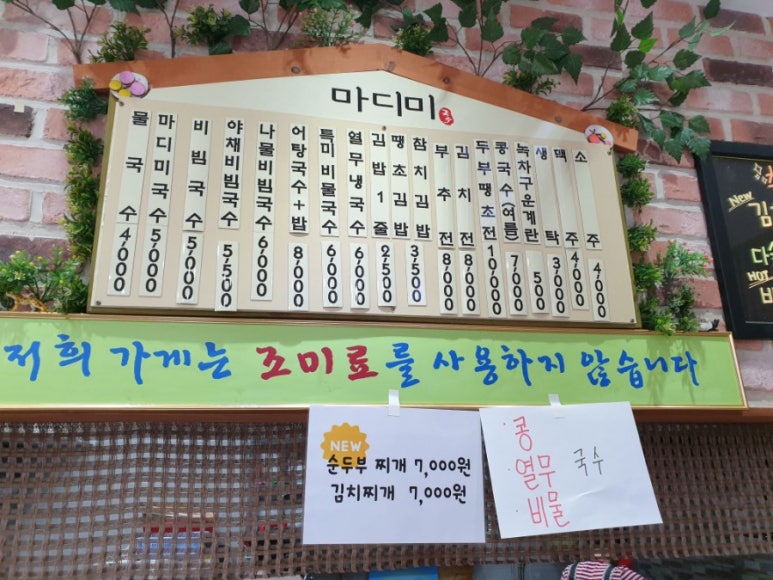 마디미
물국수 4,000
마디미국수 5,000
비빔국수 5,000
야채비빔국수 5,500
나물비빔국수 6,000
어탕국수+밥 8,000
특미비물국수 6,000
열무냉국수 6,000
김밥1줄 2,500
땡초김밥
참치김밥 3,500
부추전 8,000
김치전 8,000
두부땡초전 10,000
콩국수(여름) 7,000
녹차구운계란 500
생탁 3,000
맥주 4,000
소주 4,000
저희 가게는 조미료를 사용하지 않습니다
NEW
순두부 찌개 7,000원
김치찌개 7,000원
· 콩
· 열무 국수
· 비물
New
김
다
HOT
비